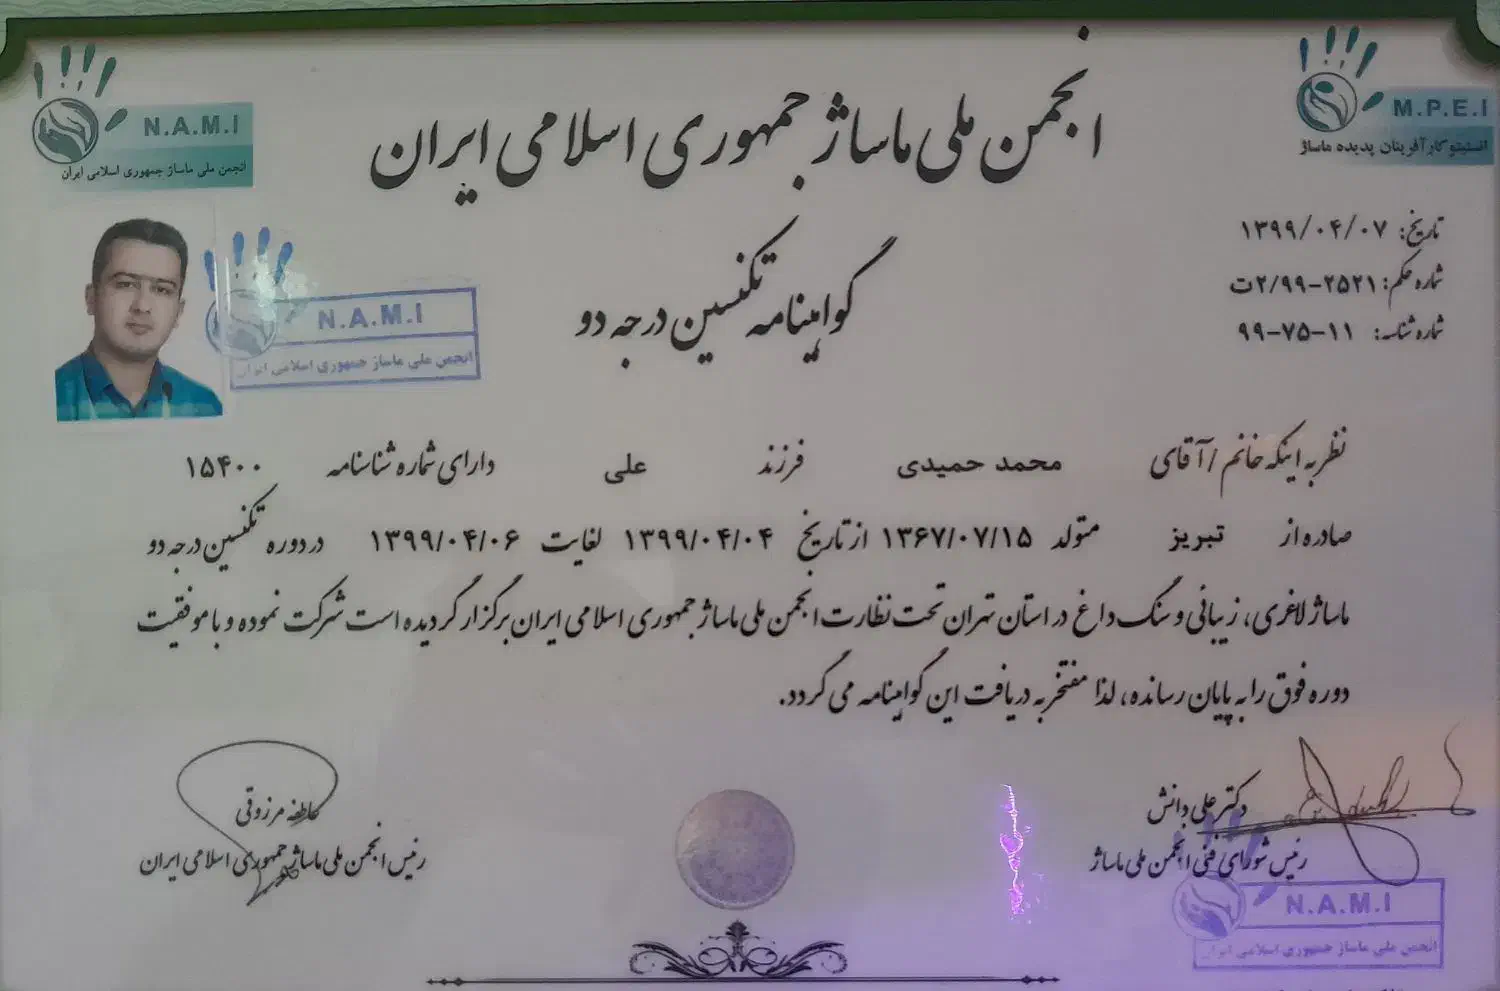 انجمن ملی ماساژ جمهوری اسلامی ایران
M.P.E.I
انستیتو کارآفرینان پدیده ماساژ
N.A.M.I
انجمن ملی ماساژ جمهوری اسلامی ایران
تاریخ: ۱۳۹۹/۰۴/۰۷
شماره حکم: ۲۵۲۱-۲/۹۹ت
شماره شناسه: ۱۱-۷۵-۹۹
گواهینامه تکنسین درجه دو
N.A.M.I
انجمن ملی ماساژ جمهوری اسلامی ایران
نظر به اینکه خانم / آقای محمد حمیدی فرزند علی دارای شماره شناسنامه ۱۵۴۰۰
صادره از تبریز متولد ۱۳۶۷/۰۷/۱۵ از تاریخ ۱۳۹۹/۰۴/۰۴ لغایت ۱۳۹۹/۰۴/۰۶ در دوره تکنسین درجه دو
ماساژ لاغری، زیبائی و سنگ داغ در استان تهران تحت نظارت انجمن ملی ماساژ جمهوری اسلامی ایران برگزار گردیده است شرکت نموده و با موفقیت
دوره فوق را به پایان رسانده، لذا مفتخر به دریافت این گواهینامه می گردد.
دکتر علی دانش
رئیس شورای فنی انجمن ملی ماساژ
عاطفه مرزوقی
رئیس انجمن ملی ماساژ جمهوری اسلامی ایران
N.A.M.I
انجمن ملی ماساژ جمهوری اسلامی ایران